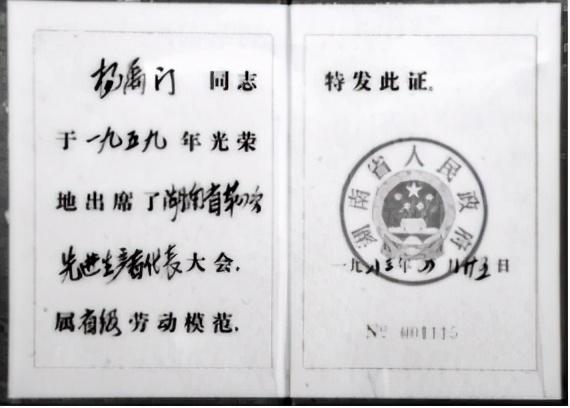 杨禹门 同志
于一九五九年光荣
地出席了湖南省第次
先进生产者代表大会，
属省级劳动模范.
特发此证。
湖南省人民政府
一九八三年四月廿五日
№ 001115